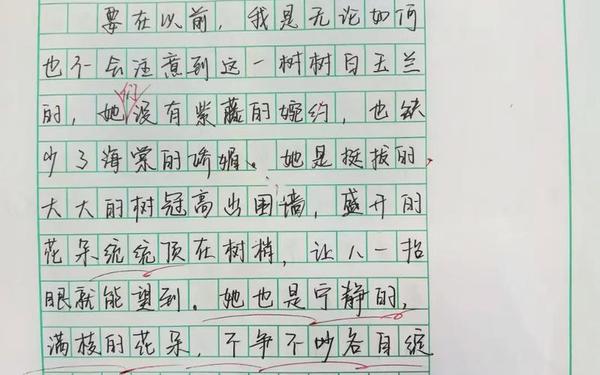 要在以前，我是无论如何
也不会注意到这一树树白玉兰
的，她们没有紫藤的婉约，也缺
少了海棠的娇媚。她是挺拔的，
大大的树冠高出围墙，盛开的
花朵统统顶在树梢，让人一抬
眼就能望到。她也是宁静的，
满枝的花朵，不争不吵各自绽